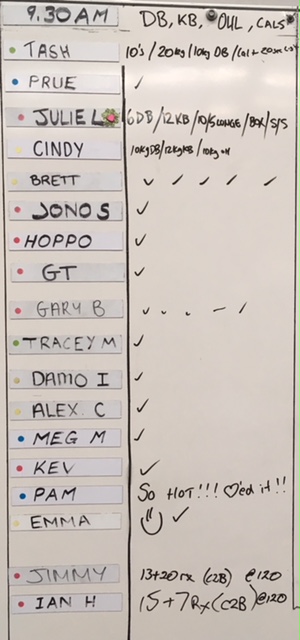 9.30 AM DB, KB, OHL, CALS
TASH 10's / 20kg / 10kg DB / Cal +
PRUE ✓
JULIE L 6DB / 12KB / 10/SLUNGE / BOX / S/S
CINDY 10kgDB/12kgKB / 10kg
BRETT ✓ ✓ ✓ ✓ ✓
JONO S ✓
HOPPO ✓
GT ✓
GARY B
TRACEY M ✓
DAMO I ✓
ALEX. C ✓
MEG M ✓
KEV ✓
PAM So HOT!!! ♡'ed it!!
EMMA ✓
JIMMY 13+20 rx (C2B) @120
IAN H 15+7 Rx (C2B) @120